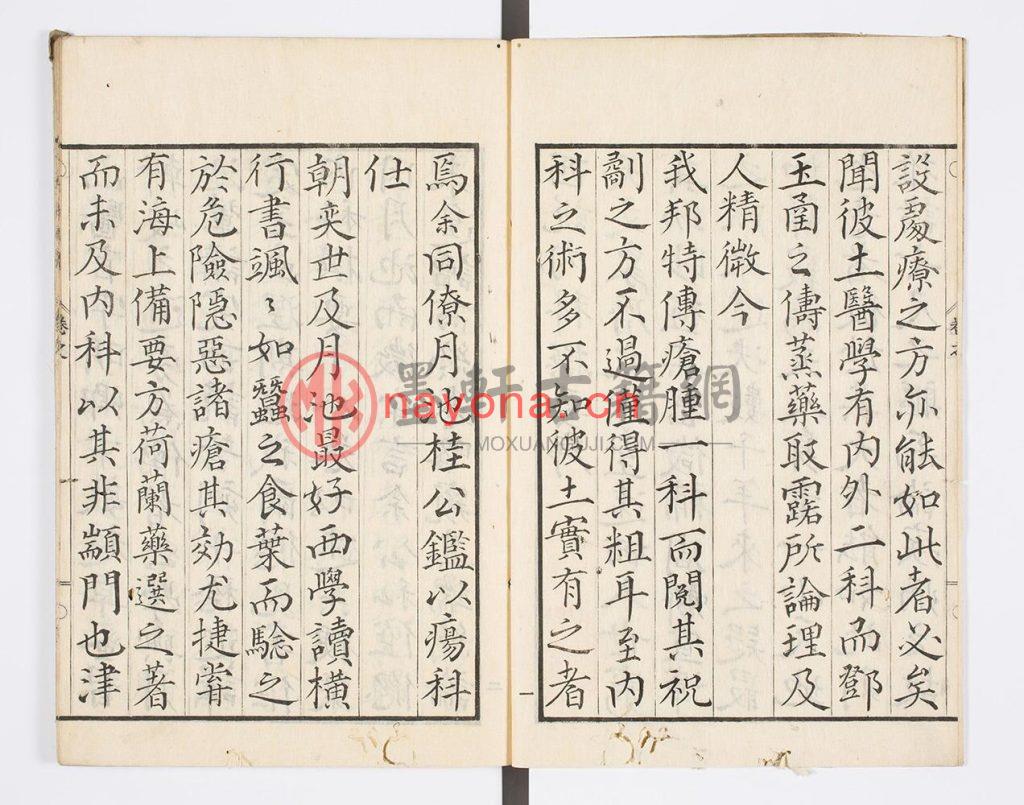 設處療之方亦能如此者必矣
聞彼土醫學有內外二科而鄧
玉函之儔蒸藥取露所論理及
人精微今
我邦特傳瘡腫一科而閱其祝
劀之方不過僅得其粗耳至內
科之術多不知彼土實有之者
焉余同僚月池桂公鑑以瘍科
仕
朝奕世及月池最好西學讀橫
行書颯〻如蠶之食葉而驗之
於危險隱惡諸瘡其効尤捷嘗
有海上備要方荷蘭藥選之著
而未及內科以其非顓門也津
墨軒古籍網
nayona.cn
MOXUANGUJI.COM